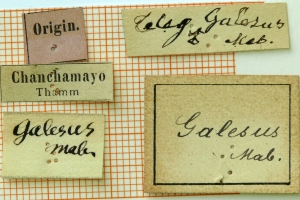 Origin.
Galesus
Mab.
Chanchamayo
Thamm
Galesus
Mab.
Galesus
Mab.